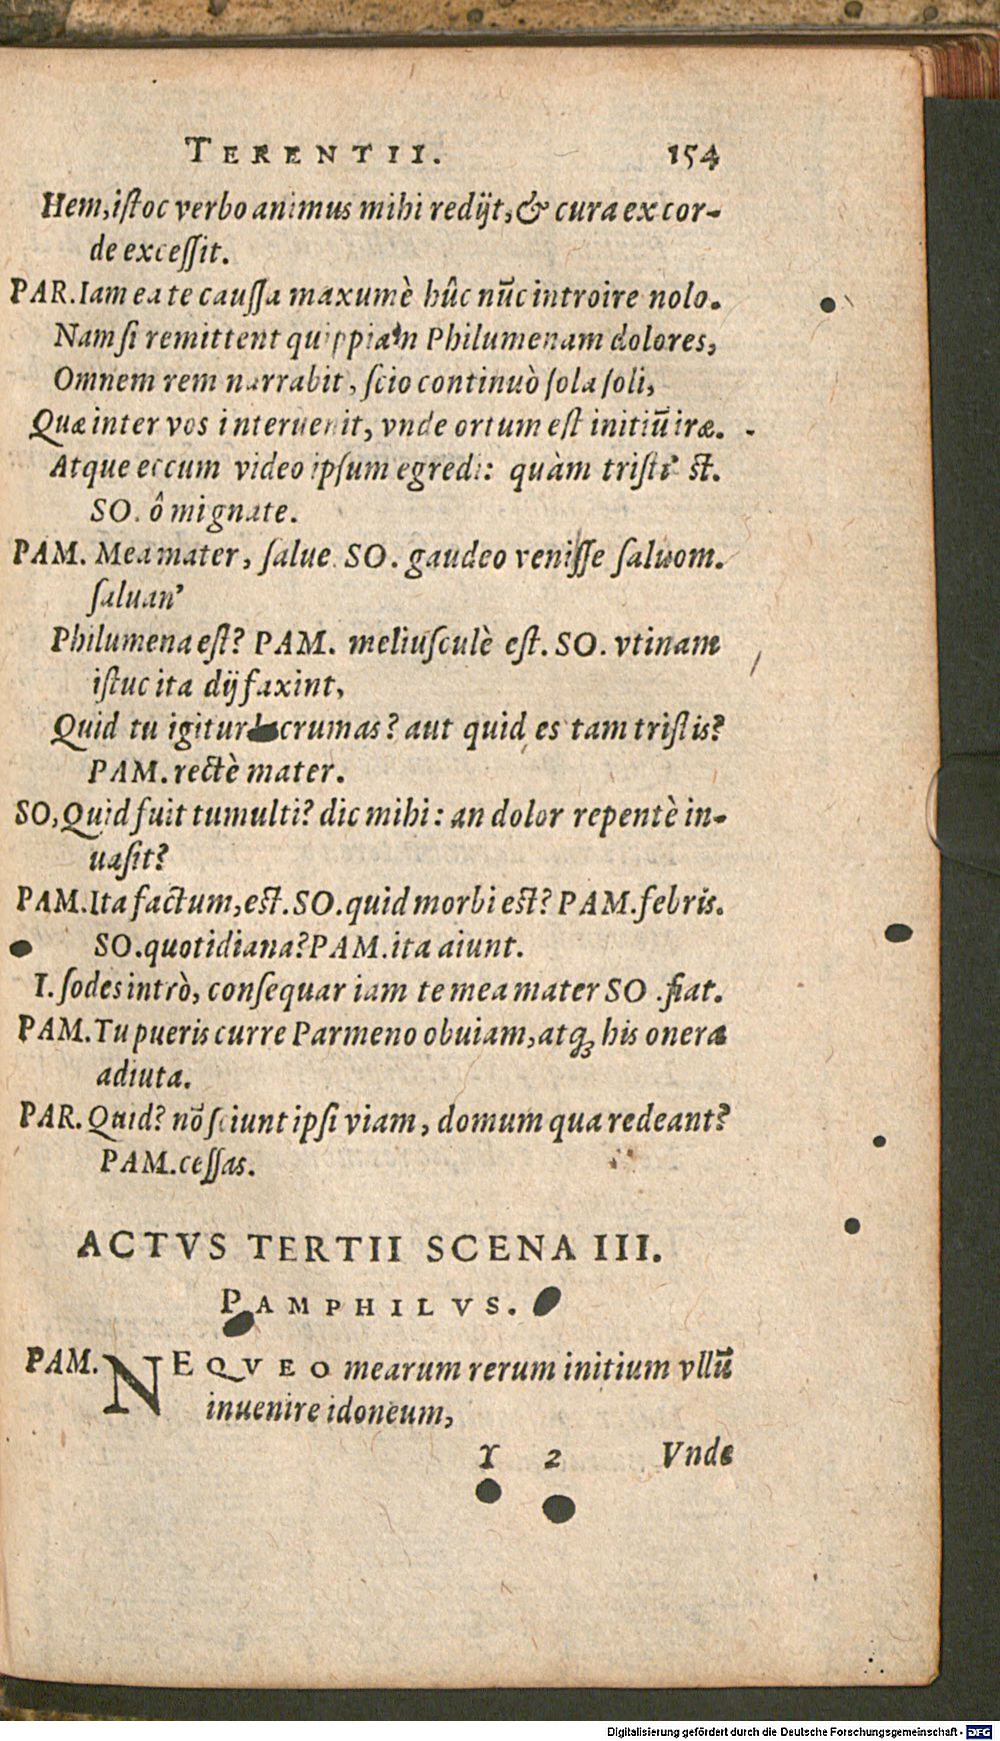 TERENTII. 154
Hem, iſtoc verbo animus mihi redijt, & cura ex cor-
de exceſſit.
PAR. Iam ea te cauſſa maxumè hûc nūc introire nolo.
Nam ſi remittent quippiam Philumenam dolores,
Omnem rem narrabit, ſcio continuò ſola ſoli,
Quæ inter vos interuenit, vnde ortum eſt initiū iræ.
Atque eccum video ipſum egredi: quàm triſti' ſt.
SO. ô mi gnate.
PAM. Mea mater, ſalue. SO. gaudeo veniſſe ſaluom.
ſaluan'
Philumena eſt? PAM. meliuſculè eſt. SO. vtinam
iſtuc ita dij faxint,
Quid tu igitur lacrumas? aut quid es tam triſtis?
PAM. rectè mater.
SO, Quid fuit tumulti? dic mihi: an dolor repentè in-
uaſit?
PAM. Ita factum, eſt. SO. quid morbi eſt? PAM. febris.
SO. quotidiana? PAM. ita aiunt.
I. ſodes intrò, conſequar iam te mea mater SO. fiat.
PAM. Tu pueris curre Parmeno obuiam, atqꝫ his onera
adiuta.
PAR. Quid? nō ſciunt ipſi viam, domum qua redeant?
PAM. ceſſas.
ACTVS TERTII SCENA III.
PAMPHILVS.
PAM. NEQVEO mearum rerum initium vllū
inuenire idoneum,
r 2 Vnde
Digitalisierung gefördert durch die Deutsche Forschungsgemeinschaft - DFG